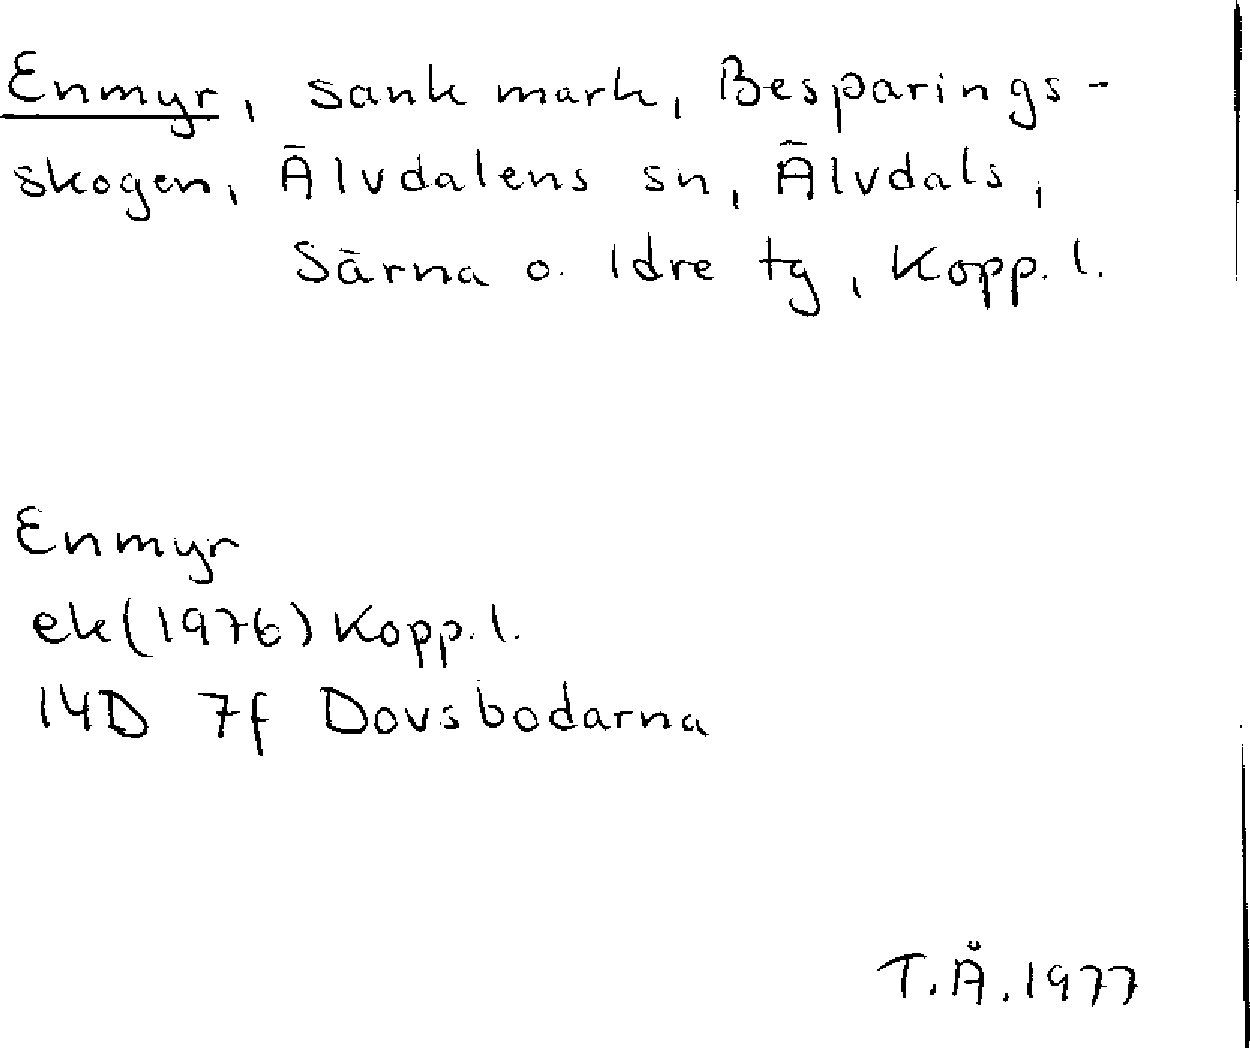 Enmyr, sank mark, Besparings-
skogen, Älvdalens sn, Älvdals,
Särna o. Idre tg, Kopp. l.
Enmyr
ek (1976) Kopp. l.
14D 7f Dovsbodarna
T.Å. 1977